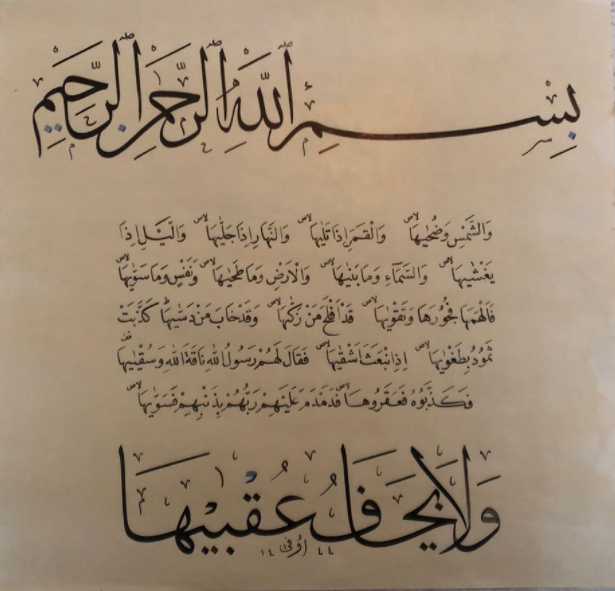 بِسْمِ ٱللَّهِ ٱلرَّحْمَنِ ٱلرَّحِيمِ
وَالشَّمْسِ وَضُحٰيهَا وَالْقَمَرِ اِذَا تَلٰيهَا وَالنَّهَارِ اِذَا جَلّٰيهَا وَالَّيْلِ اِذَا
يَغْشٰيهَا وَالسَّمَاءِ وَمَا بَنٰيهَا وَالْاَرْضِ وَمَا طَحٰيهَا وَنَفْسٍ وَمَا سَوّٰيهَا
فَاَلْهَمَهَا فُجُورَهَا وَتَقْوٰيهَا قَدْ اَفْلَحَ مَنْ زَكّٰيهَا وَقَدْ خَابَ مَنْ دَسّٰيهَا كَذَّبَتْ
ثَمُودُ بِطَغْوٰيهَا اِذِ انْبَعَثَ اَشْقٰيهَا فَقَالَ لَهُمْ رَسُولُ اللهِ نَاقَةَ اللهِ وَسُقْيٰيهَا
فَكَذَّبُوهُ فَعَقَرُوهَا فَدَمْدَمَ عَلَيْهِمْ رَبُّهُمْ بِذَنْبِهِمْ فَسَوّٰيهَا
وَلَا يَخَافُ عُقْبٰيهَا